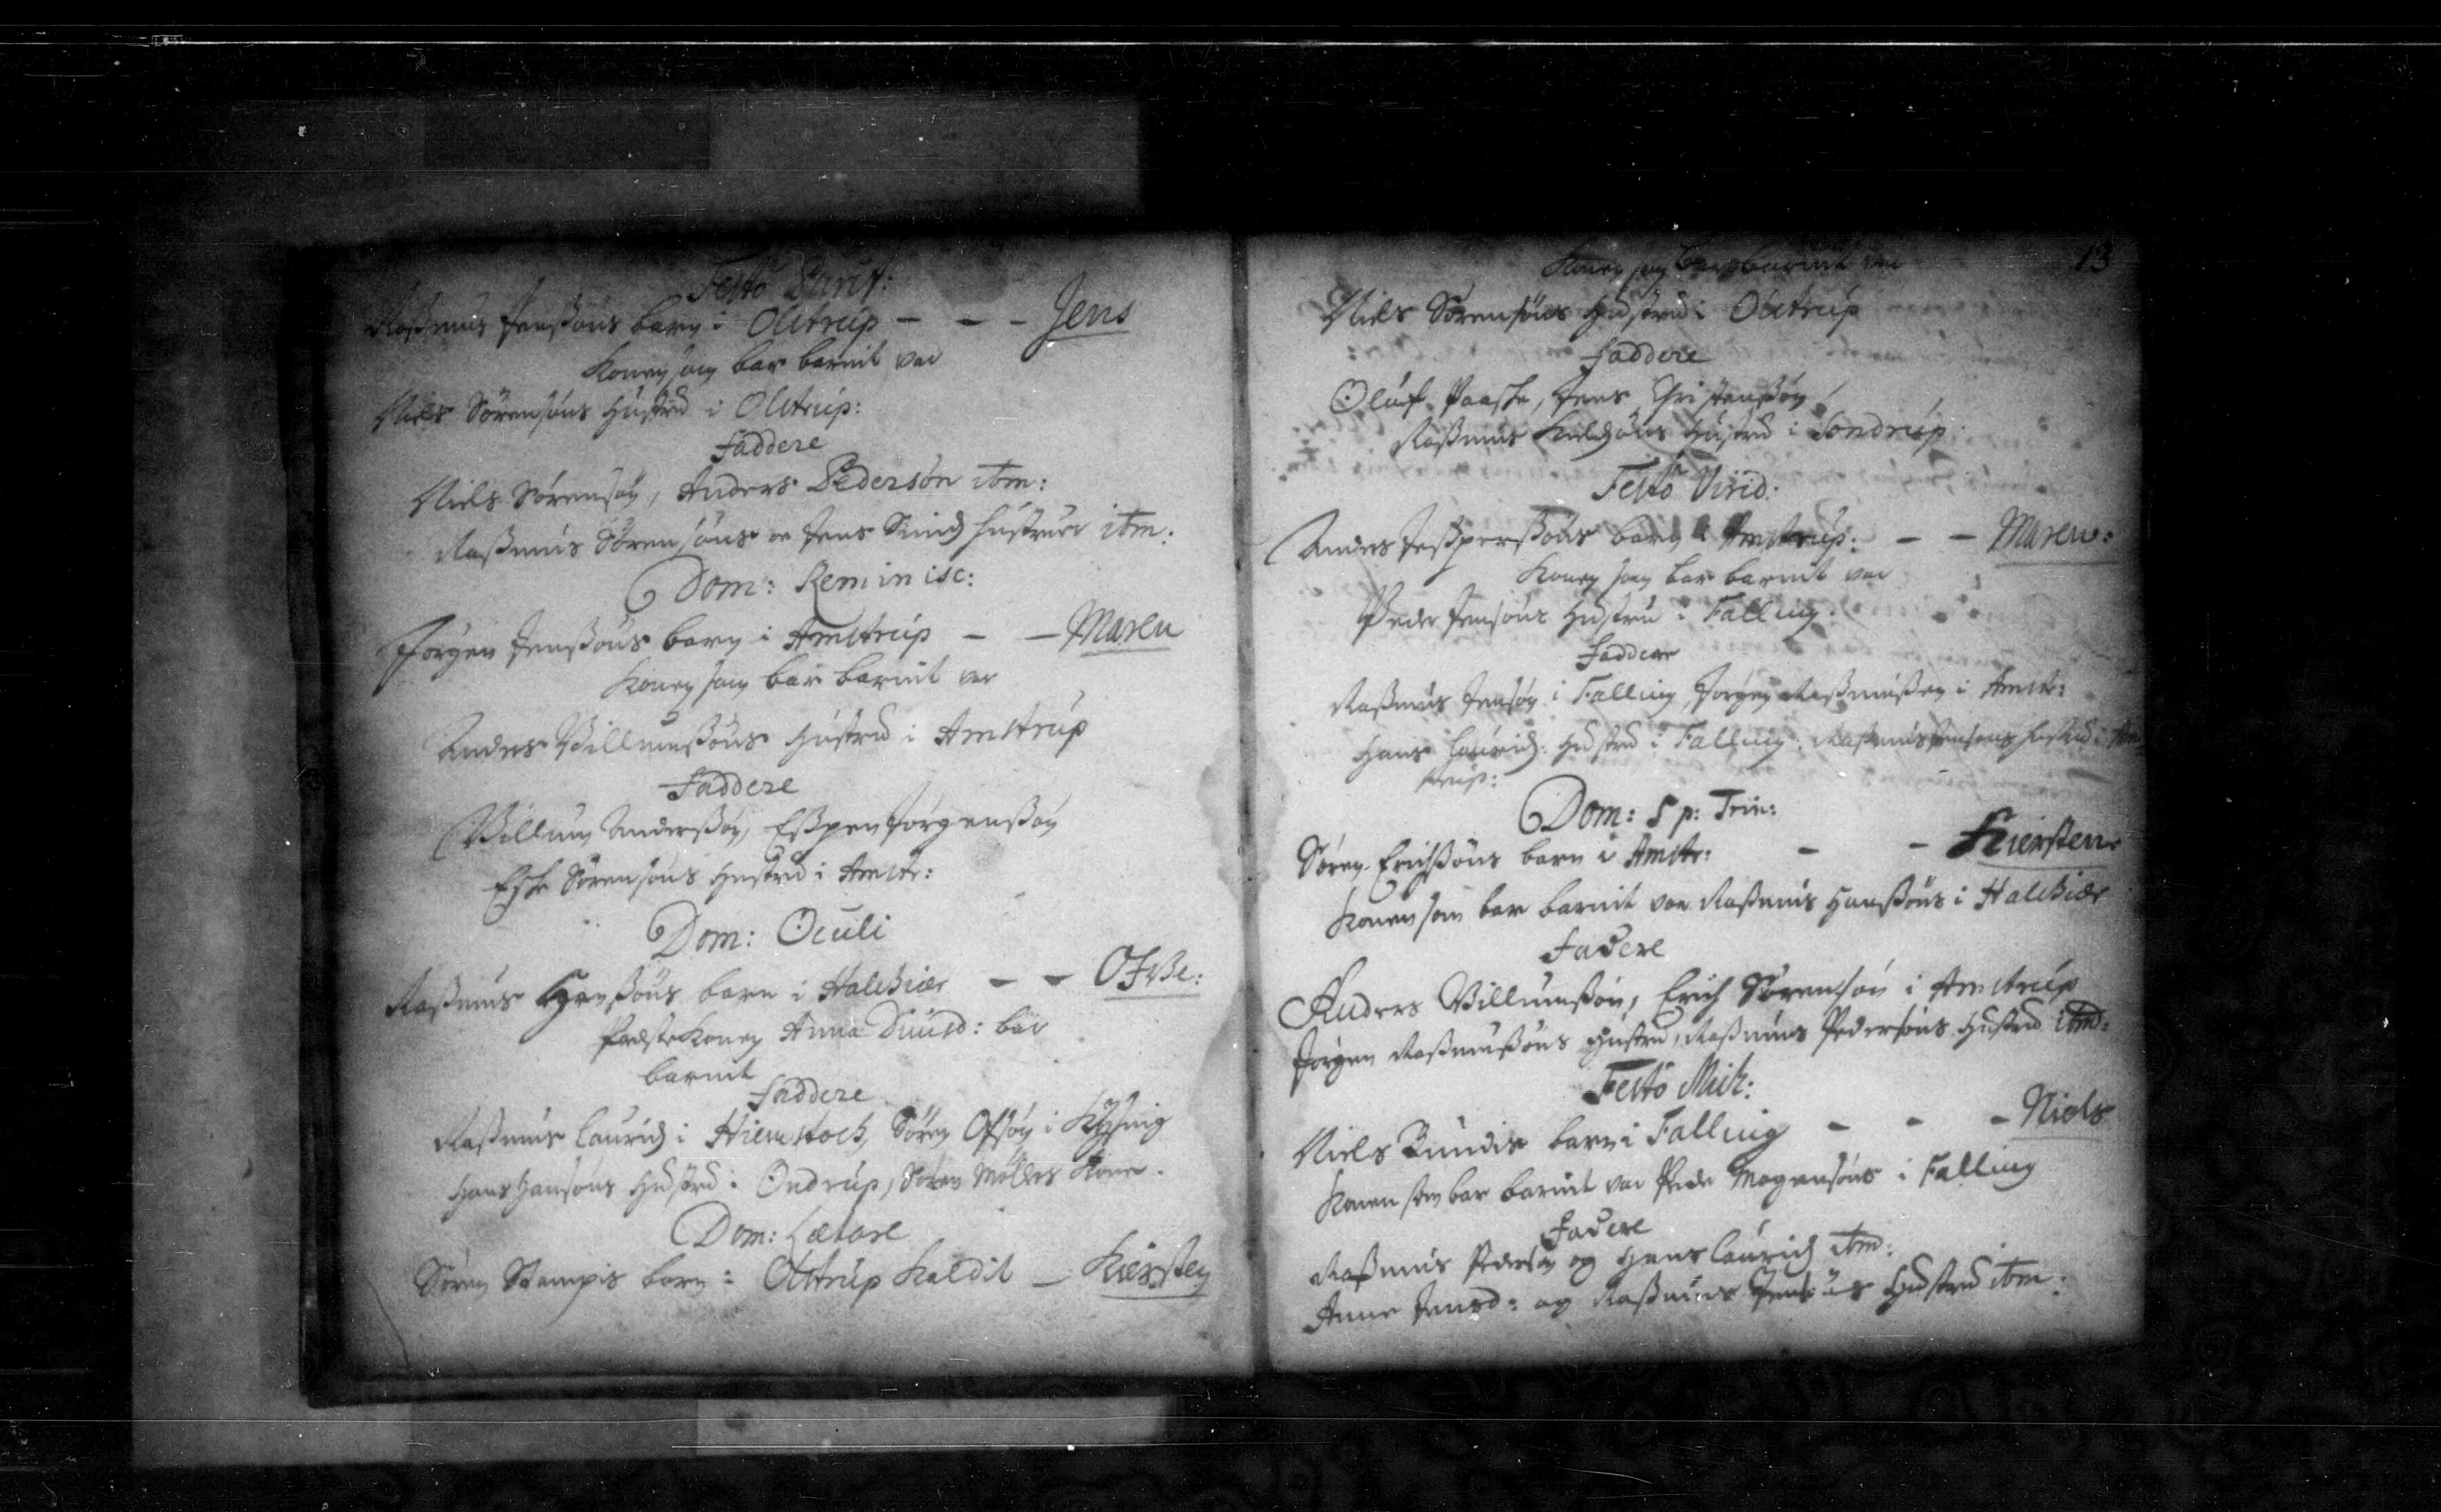 Festo Purif:
Rasmus Jenssøns barn i Olstrup - - - Jens
Konen som bar barnit var
Niels Sørensøns Hustrue i Olstrup:
Faddere
Niels Sørensøn, Anders Pedersøn ibm:
Rasmus Sørensøns oc Jens Smids hustruer ibm:
Dom: Reminisc:
Jørgen Jenssøns barn i Amstrup - - Maren
Konen som bar barnit var
Anders Villumssøns Hustrue i Amstrup
Faddere
Villum Anderssøn, Espen Jørgenssøn
Eske Sørensøns Hustrue i Amstr:
Dom: Oculi
Rasmus barn i Halckiær - - Offve:
Præstekonen Anna bar
barnit
Faddere
Rasmus Laurids i Hiemstock, Søren Ofsøn i Kysing
Hans Hansøns Hustrue i Ondrup, Søren Møllers Kone.
Dom: Lætare
Søren Stampis barn i Olstrup kaldit - Kiersten
13
Konen som bar barnit var
Niels Sørensøns Hustrue i Olstrup
Faddere
Oluf Paaske, Jens Christenssøn
Rasmus Hustrue i Sondrup
Festo Virid:
Anders Jesperssøns barn i Amstrup: - - Maren:
Konen som bar barnit var
Peder Jensøns Hustrue i Falling.
Faddere
Rasmus Jensøn i Falling, Jørgen Rasmussen i Amstr:
Hans Laurids: Hustrue i Falling. Rasmus Jensøns hustrue i Am-
strup:
Dom: 5 p: Trin:
Søren Erichssøns barn i Amstr: - - Kiersten
Konen som bar barnit var Rasmus Hanssøns i Halckiær
Fadere
Anders Villumssøn, Erich Sørensøn i Amstrup
Jørgen Rasmussøns Hustrue, Rasmus Pedersøns Hustrue ibid:
Festo Mich:
Niels Bundis barn i Falling - - - Niels
Konen som bar barnit var Peder Mogensøns i Falling
Fadere
Rasmus Pedersøn og Hans Laurids ibm:
Anne Jensd: og Rasmus Jensøns Hustrue ibm: